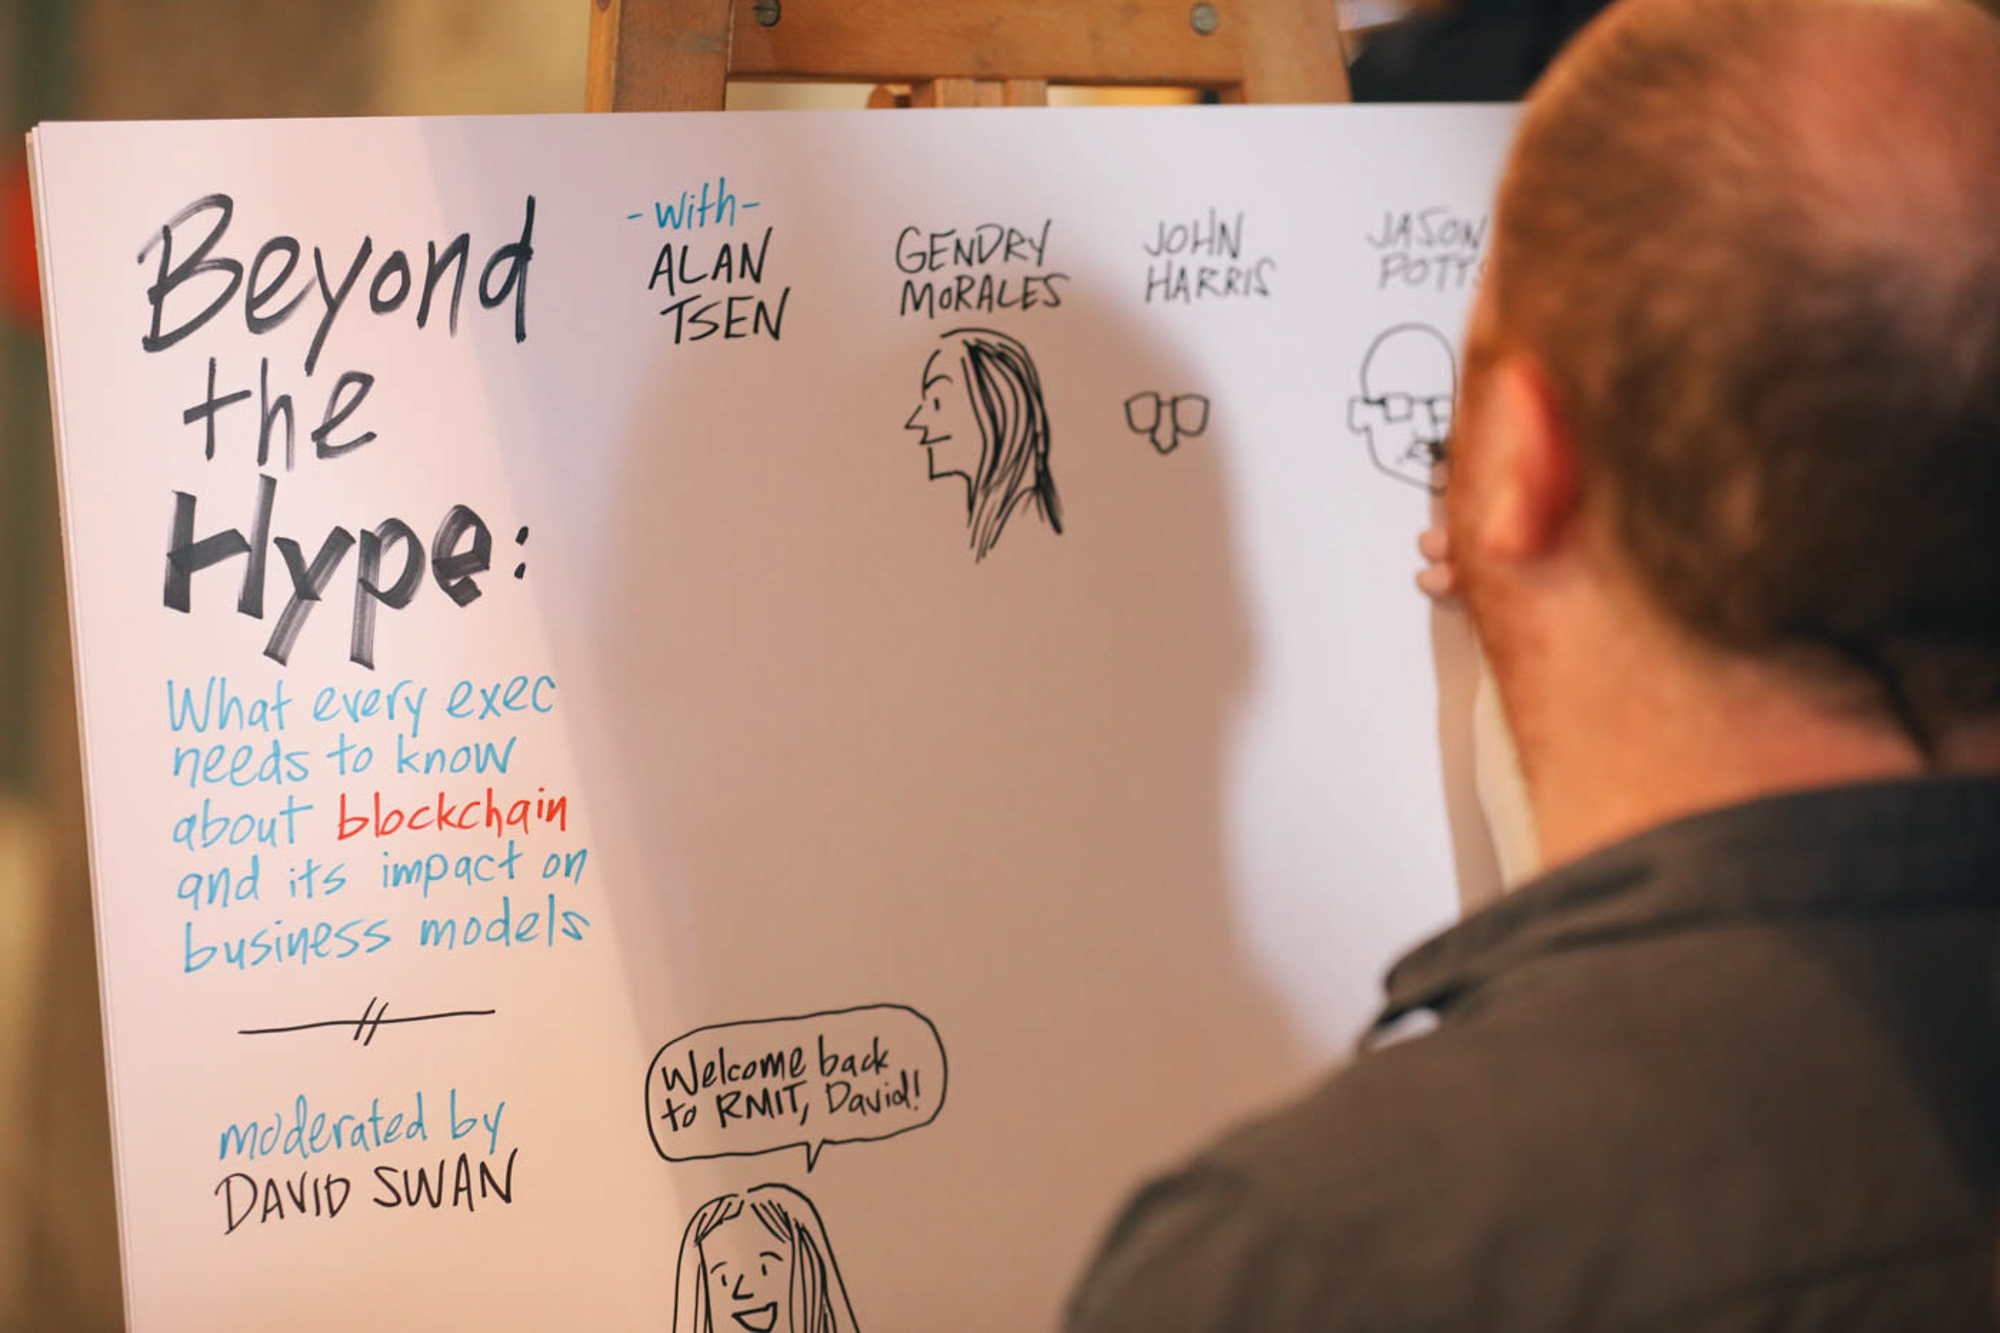 Beyond
the
Hype:
What every exec
needs to know
about blockchain
and its impact on
business models
moderated by
DAVID SWAN
-with-
ALAN
TSEN
GENDRY
MORALES
JOHN
HARRIS
JASON
POTTS
Welcome back
to RMIT, David!